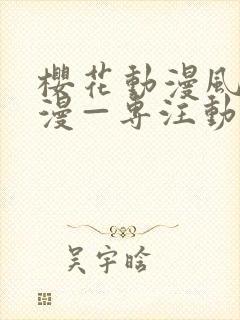 櫻花動漫風
漫－專注動
吴宇晗